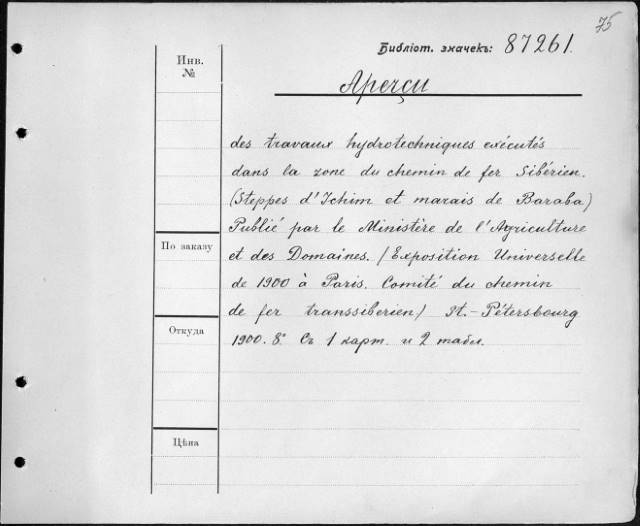 75
Библіот. значекъ: 87261.
Инв.
№
Aperçu
des travaux hydrotechniques exécutés
dans la zone du chemin de fer Sibérien.
(Steppes d'Ichim et marais de Baraba)
Publié par le Ministère de l'Agriculture
По заказу
et des Domaines. (Exposition Universelle
de 1900 à Paris. Comité du chemin
de fer transsiberien) St.-Pétersbourg
Откуда
1900. 8° Съ 1 карт. и 2 табл.
Цѣна